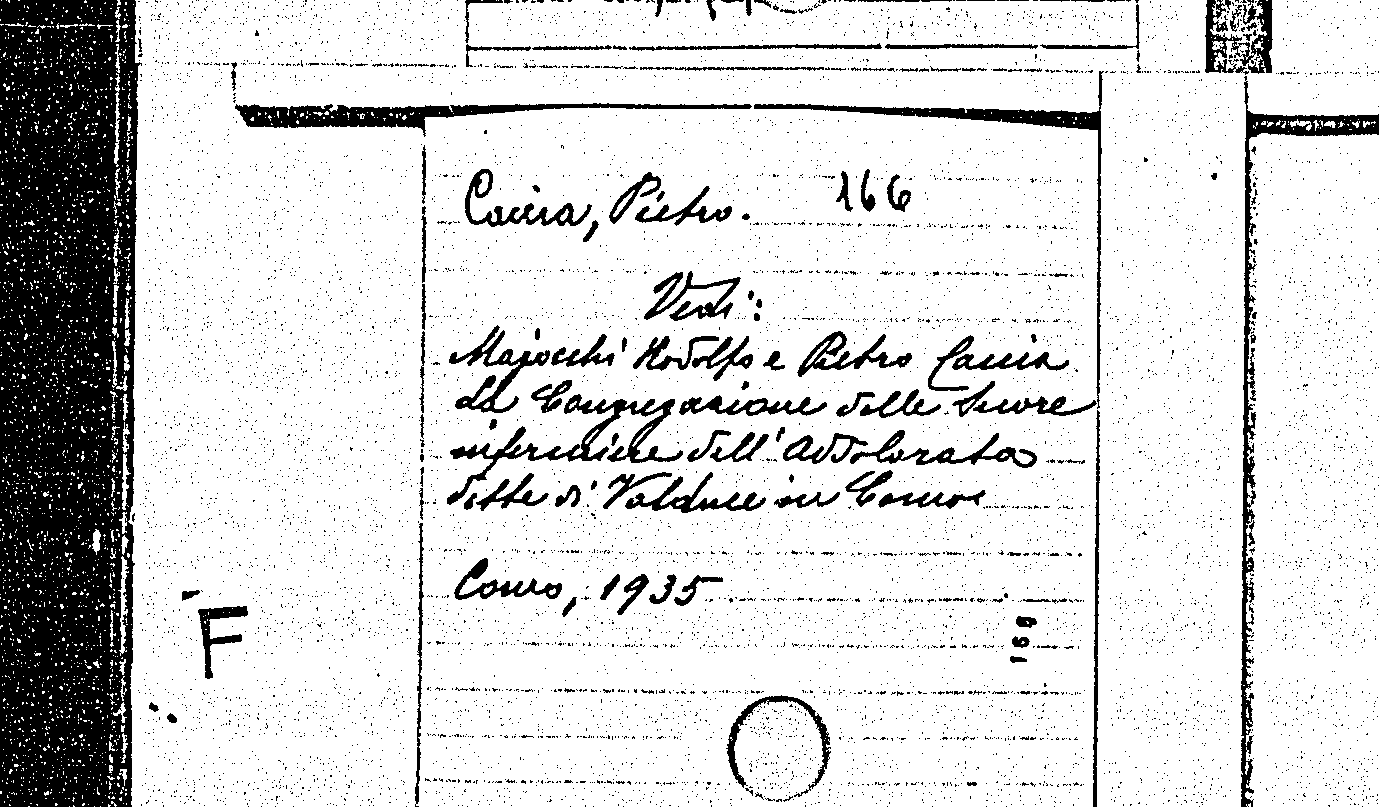 Caccia, Pietro. 166
Vedi:
Majocchi Rodolfo e Pietro Caccia
La Congregazione delle Suore
infermiere dell'Addolorata
dette di Valduce in Como
Como, 1935
F
169